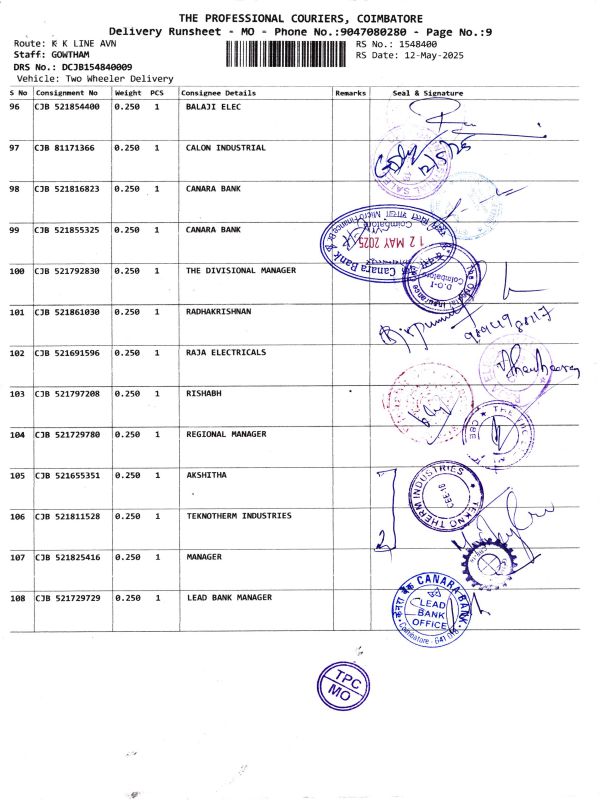 THE PROFESSIONAL COURIERS, COIMBATORE
Delivery Runsheet - MO - Phone No.:9047080280 - Page No.:9
Route: K K LINE AVN
RS No.: 1548400
Staff: GOWTHAM
RS Date: 12-May-2025
DRS No.: DCJB154840009
Vehicle: Two Wheeler Delivery
S No Consignment No Weight PCS Consignee Details Remarks Seal & Signature
96 CJB 521854400 0.250 1 BALAJI ELEC
97 CJB 81171366 0.250 1 CALON INDUSTRIAL
98 CJB 521816823 0.250 1 CANARA BANK
99 CJB 521855325 0.250 1 CANARA BANK
12 MAY 2025
Canara Bank
Coimbatore
100 CJB 521792830 0.250 1 THE DIVISIONAL MANAGER
D.O-I
Coimbatore
101 CJB 521861030 0.250 1 RADHAKRISHNAN
102 CJB 521691596 0.250 1 RAJA ELECTRICALS
103 CJB 521797208 0.250 1 RISHABH
104 CJB 521729780 0.250 1 REGIONAL MANAGER
105 CJB 521655351 0.250 1 AKSHITHA
TEKNO THERM INDUSTRIES
CBE-18
106 CJB 521811528 0.250 1 TEKNOTHERM INDUSTRIES
2
107 CJB 521825416 0.250 1 MANAGER
108 CJB 521729729 0.250 1 LEAD BANK MANAGER
केनरा बैंक CANARA BANK
LEAD
BANK
OFFICE
TPC
MO